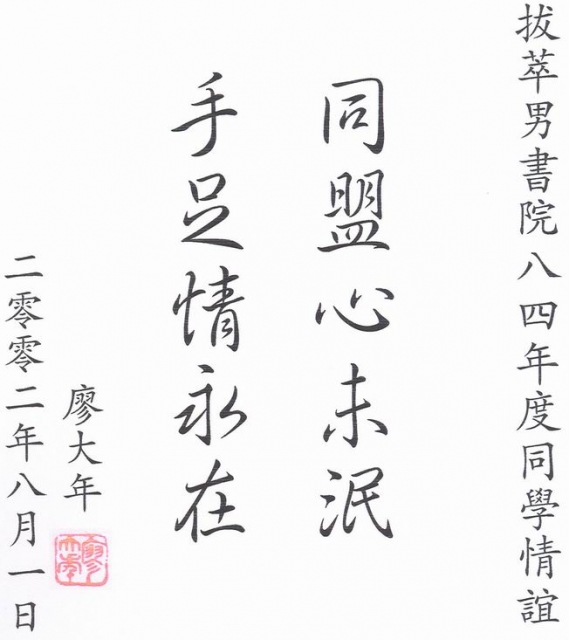 拔萃男書院八四年度同學情誼
同盟心未泯
手足情永在
廖大年
二零零二年八月一日